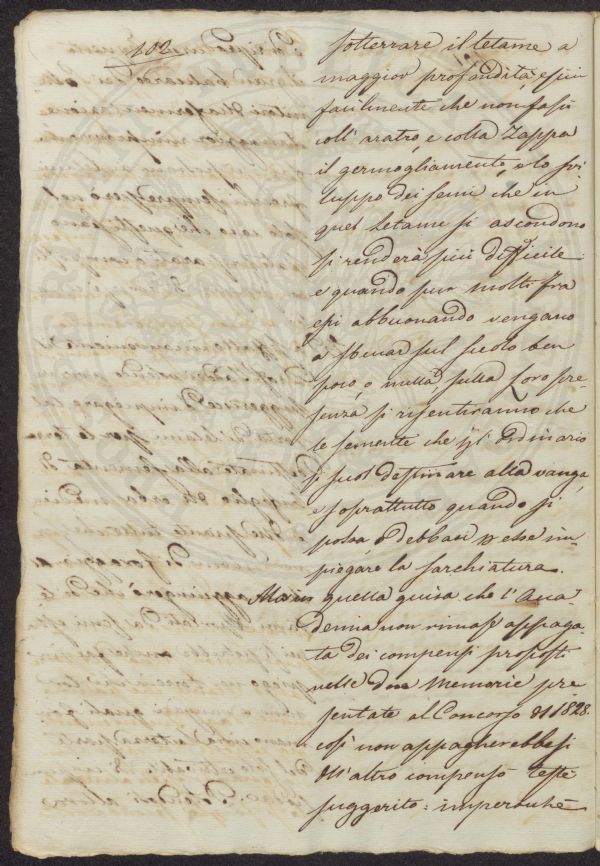 102
sotterrare il letame a
maggior profondità, e più
facilmente che non fassi
coll' aratro, e colla Zappa
il germogliamento, e lo svi-
luppo dei semi che in
quel Letame si ascondono
si renderà più difficile
e quando pur molti fra
essi abbuonando vengano
a sbucar sul suolo ben
poco, o nulla sulla loro pre-
senza si risentiranno che
le semente che p l' Ordinario
si suol destinare alla vanga,
e soprattutto quando si
possa o debbasi p esse im-
piegare la sarchiatura.
Ma in quella guisa che l' Acca-
demia non rimase appaga-
ta dei compensi proposti
nelle due Memorie pre-
sentate al Concorso di 1828.
così non appagherebbesi
dell' altro compenso teste
suggerito: imperochè